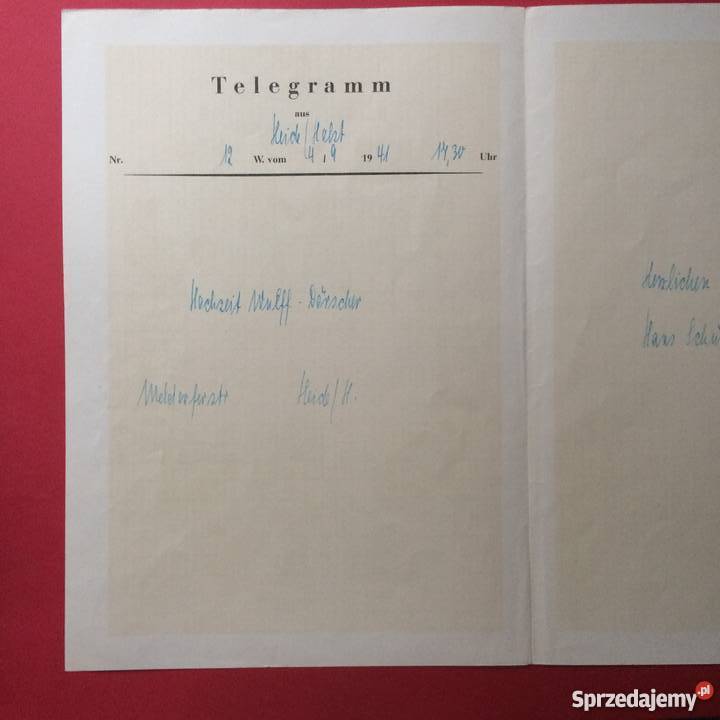 Telegramm
aus
Heide/Holst
Nr. 12 W. vom 4/9 1941 17,30 Uhr
Hochzeit Wulff-Dörscher
Meldorferstr Heide/H.
Herzlichen
Hans
Sprzedajemy.pl